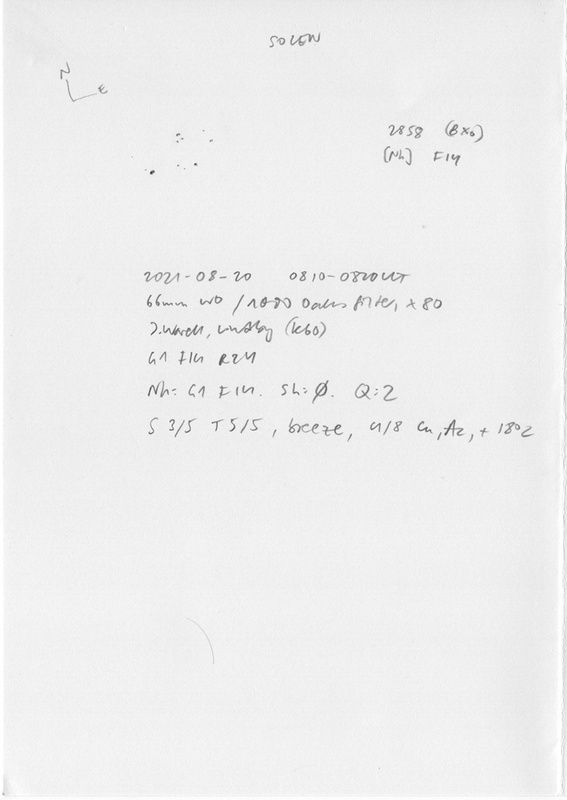 SOLEN
N
E
2858 (BXO)
[Nh] F14
2021-08-20 0810-0820UT
66mm WO / filter, x80
J. Warell, (K60)
G1 F14 R24
Nh: G1 F14. Sh: Ø. Q: 2
S 3/5 T 5/5, breeze, 4/8 Cu, Az, + 18°Z